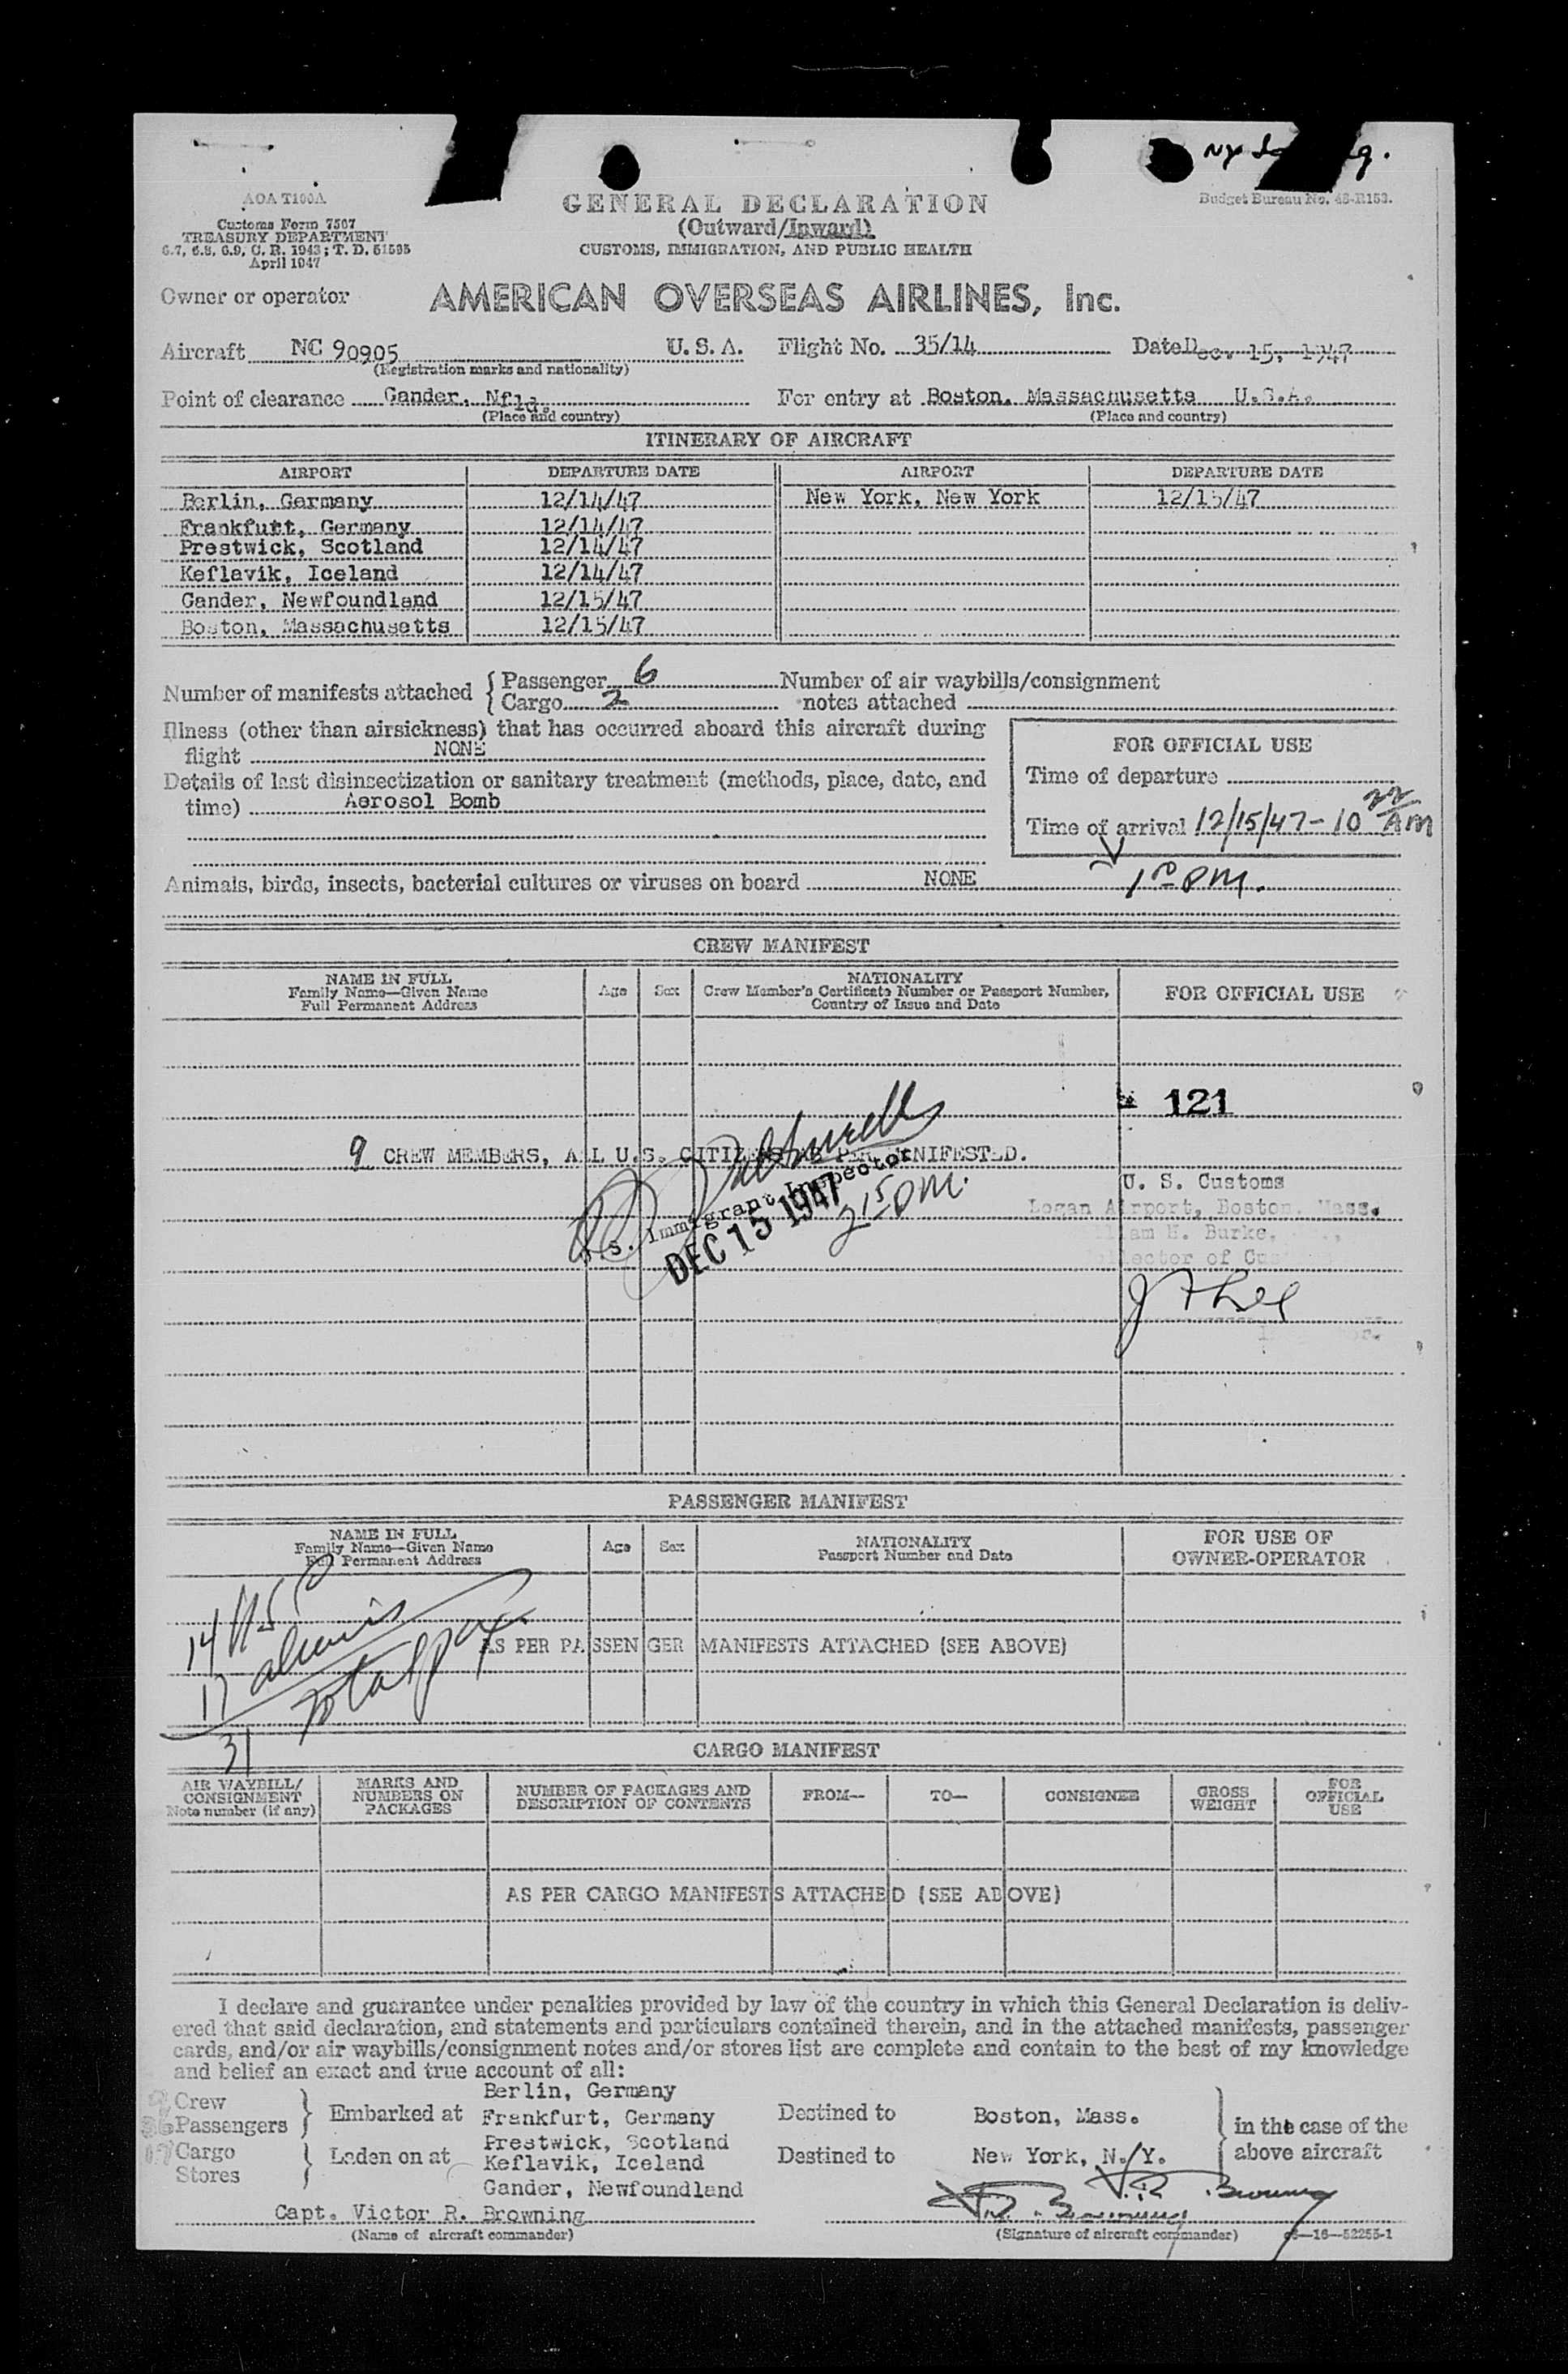 AOA T100A
Customs Form 7507
TREASURY DEPARTMENT
6.7, 6.8, 6.9, C. R. 1943; T. D. 51595
April 1947
GENERAL DECLARATION
(Outward/Inward)
CUSTOMS, IMMIGRATION, AND PUBLIC HEALTH
NY
Budget Bureau No. 48-R153.
Owner or operator AMERICAN OVERSEAS AIRLINES, Inc.
Aircraft NC 90905 U. S. A. Flight No. 35/14 Date Dec. 15, 1947
(Registration marks and nationality)
Point of clearance Gander, Nfld. For entry at Boston, Massachusetts U.S.A.
(Place and country) (Place and country)
ITINERARY OF AIRCRAFT
AIRPORT DEPARTURE DATE AIRPORT DEPARTURE DATE
Berlin, Germany 12/14/47 New York, New York 12/15/47
Frankfutt, Germany 12/14/47
Prestwick, Scotland 12/14/47
Keflavik, Iceland 12/14/47
Gander, Newfoundland 12/15/47
Boston, Massachusetts 12/15/47
Number of manifests attached { Passenger 6 Number of air waybills/consignment
Cargo 2 notes attached
Illness (other than airsickness) that has occurred aboard this aircraft during
flight NONE
Details of last disinsectization or sanitary treatment (methods, place, date, and
time) Aerosol Bomb
FOR OFFICIAL USE
Time of departure
Time of arrival 12/15/47 - 10 22 AM
Animals, birds, insects, bacterial cultures or viruses on board NONE
PM.
CREW MANIFEST
NAME IN FULL
Family Name—Given Name
Full Permanent Address
Age
Sex
NATIONALITY
Crew Member's Certificate Number or Passport Number,
Country of Issue and Date
FOR OFFICIAL USE
121
9 CREW MEMBERS, ALL U.S. CITIZENS AS PER MANIFESTED.
U.S. Immigrant Inspector
DEC 15 1947
2 15 PM.
U. S. Customs
Logan Airport, Boston, Mass.
H. Burke,
Collector of
PASSENGER MANIFEST
NAME IN FULL
Family Name—Given Name
Full Permanent Address
Age
Sex
NATIONALITY
Passport Number and Date
FOR USE OF
OWNER-OPERATOR
14 USC
17 aliens
31 Total pax.
AS PER PASSENGER MANIFESTS ATTACHED (SEE ABOVE)
CARGO MANIFEST
AIR WAYBILL/
CONSIGNMENT
Note number (if any)
MARKS AND
NUMBERS ON
PACKAGES
NUMBER OF PACKAGES AND
DESCRIPTION OF CONTENTS
FROM—
TO—
CONSIGNEE
GROSS
WEIGHT
FOR
OFFICIAL
USE
AS PER CARGO MANIFESTS ATTACHED (SEE ABOVE)
I declare and guarantee under penalties provided by law of the country in which this General Declaration is deliv-
ered that said declaration, and statements and particulars contained therein, and in the attached manifests, passenger
cards, and/or air waybills/consignment notes and/or stores list are complete and contain to the best of my knowledge
and belief an exact and true account of all:
Crew
Passengers } Embarked at
Cargo
Stores } Laden on at
Berlin, Germany
Frankfurt, Germany
Prestwick, Scotland
Keflavik, Iceland
Gander, Newfoundland
Destined to Boston, Mass.
Destined to New York, N.Y.
} in the case of the
above aircraft
Capt. Victor R. Browning
V.R. Browning
V.R. Browning
(Name of aircraft commander) (Signature of aircraft commander) 16—52255-1